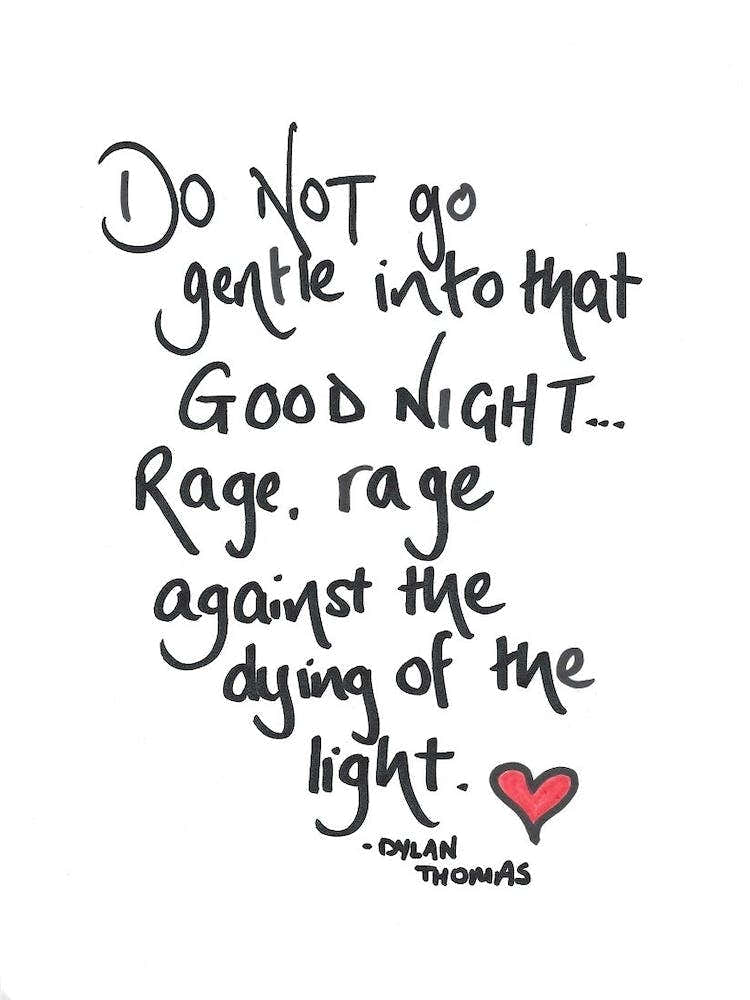 Do NOT go
gentle into that
GOOD NIGHT...
Rage, rage
against the
dying of the
light.
- DYLAN
THOMAS